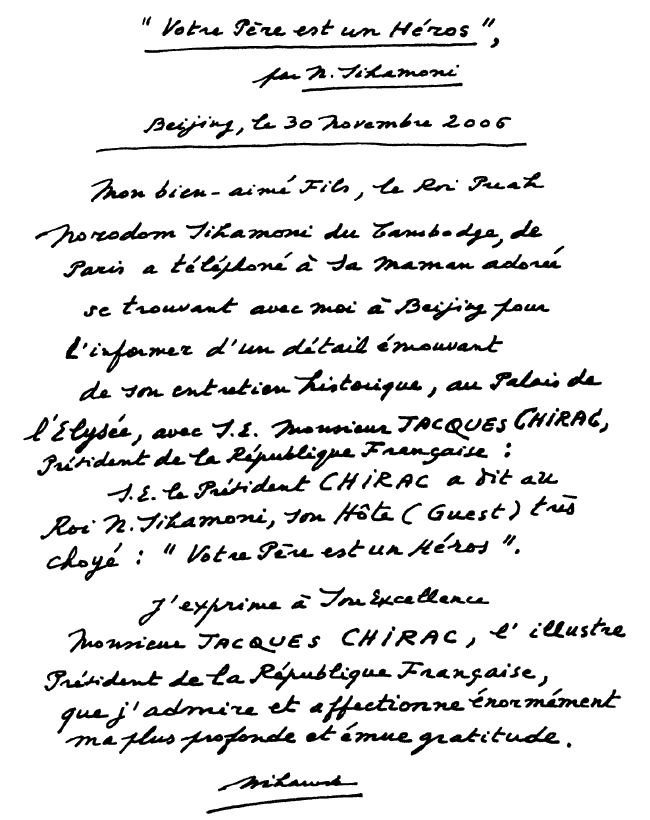 " Votre Père est un Héros ",
par N. Sihamoni
Beijing, le 30 Novembre 2006
Mon bien-aimé Fils, le Roi Preah
Norodom Sihamoni du Cambodge, de
Paris a téléphoné à Sa Maman adorée
se trouvant avec moi à Beijing pour
L'informer d'un détail émouvant
de son entretien historique, au Palais de
l'Elysée, avec S.E. Monsieur JACQUES CHIRAC,
Président de la République Française :
S.E. le Président CHIRAC a dit au
Roi N. Sihamoni, son Hôte ( Guest ) très
choyé : " Votre Père est un Héros ".
J'exprime à Son Excellence
Monsieur JACQUES CHIRAC, l'illustre
Président de la République Française,
que j'admire et affectionne énormément
ma plus profonde et émue gratitude.